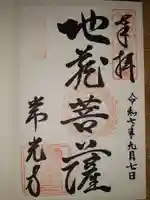 奉拝
令和七年九月七日
地蔵菩薩
常光寺